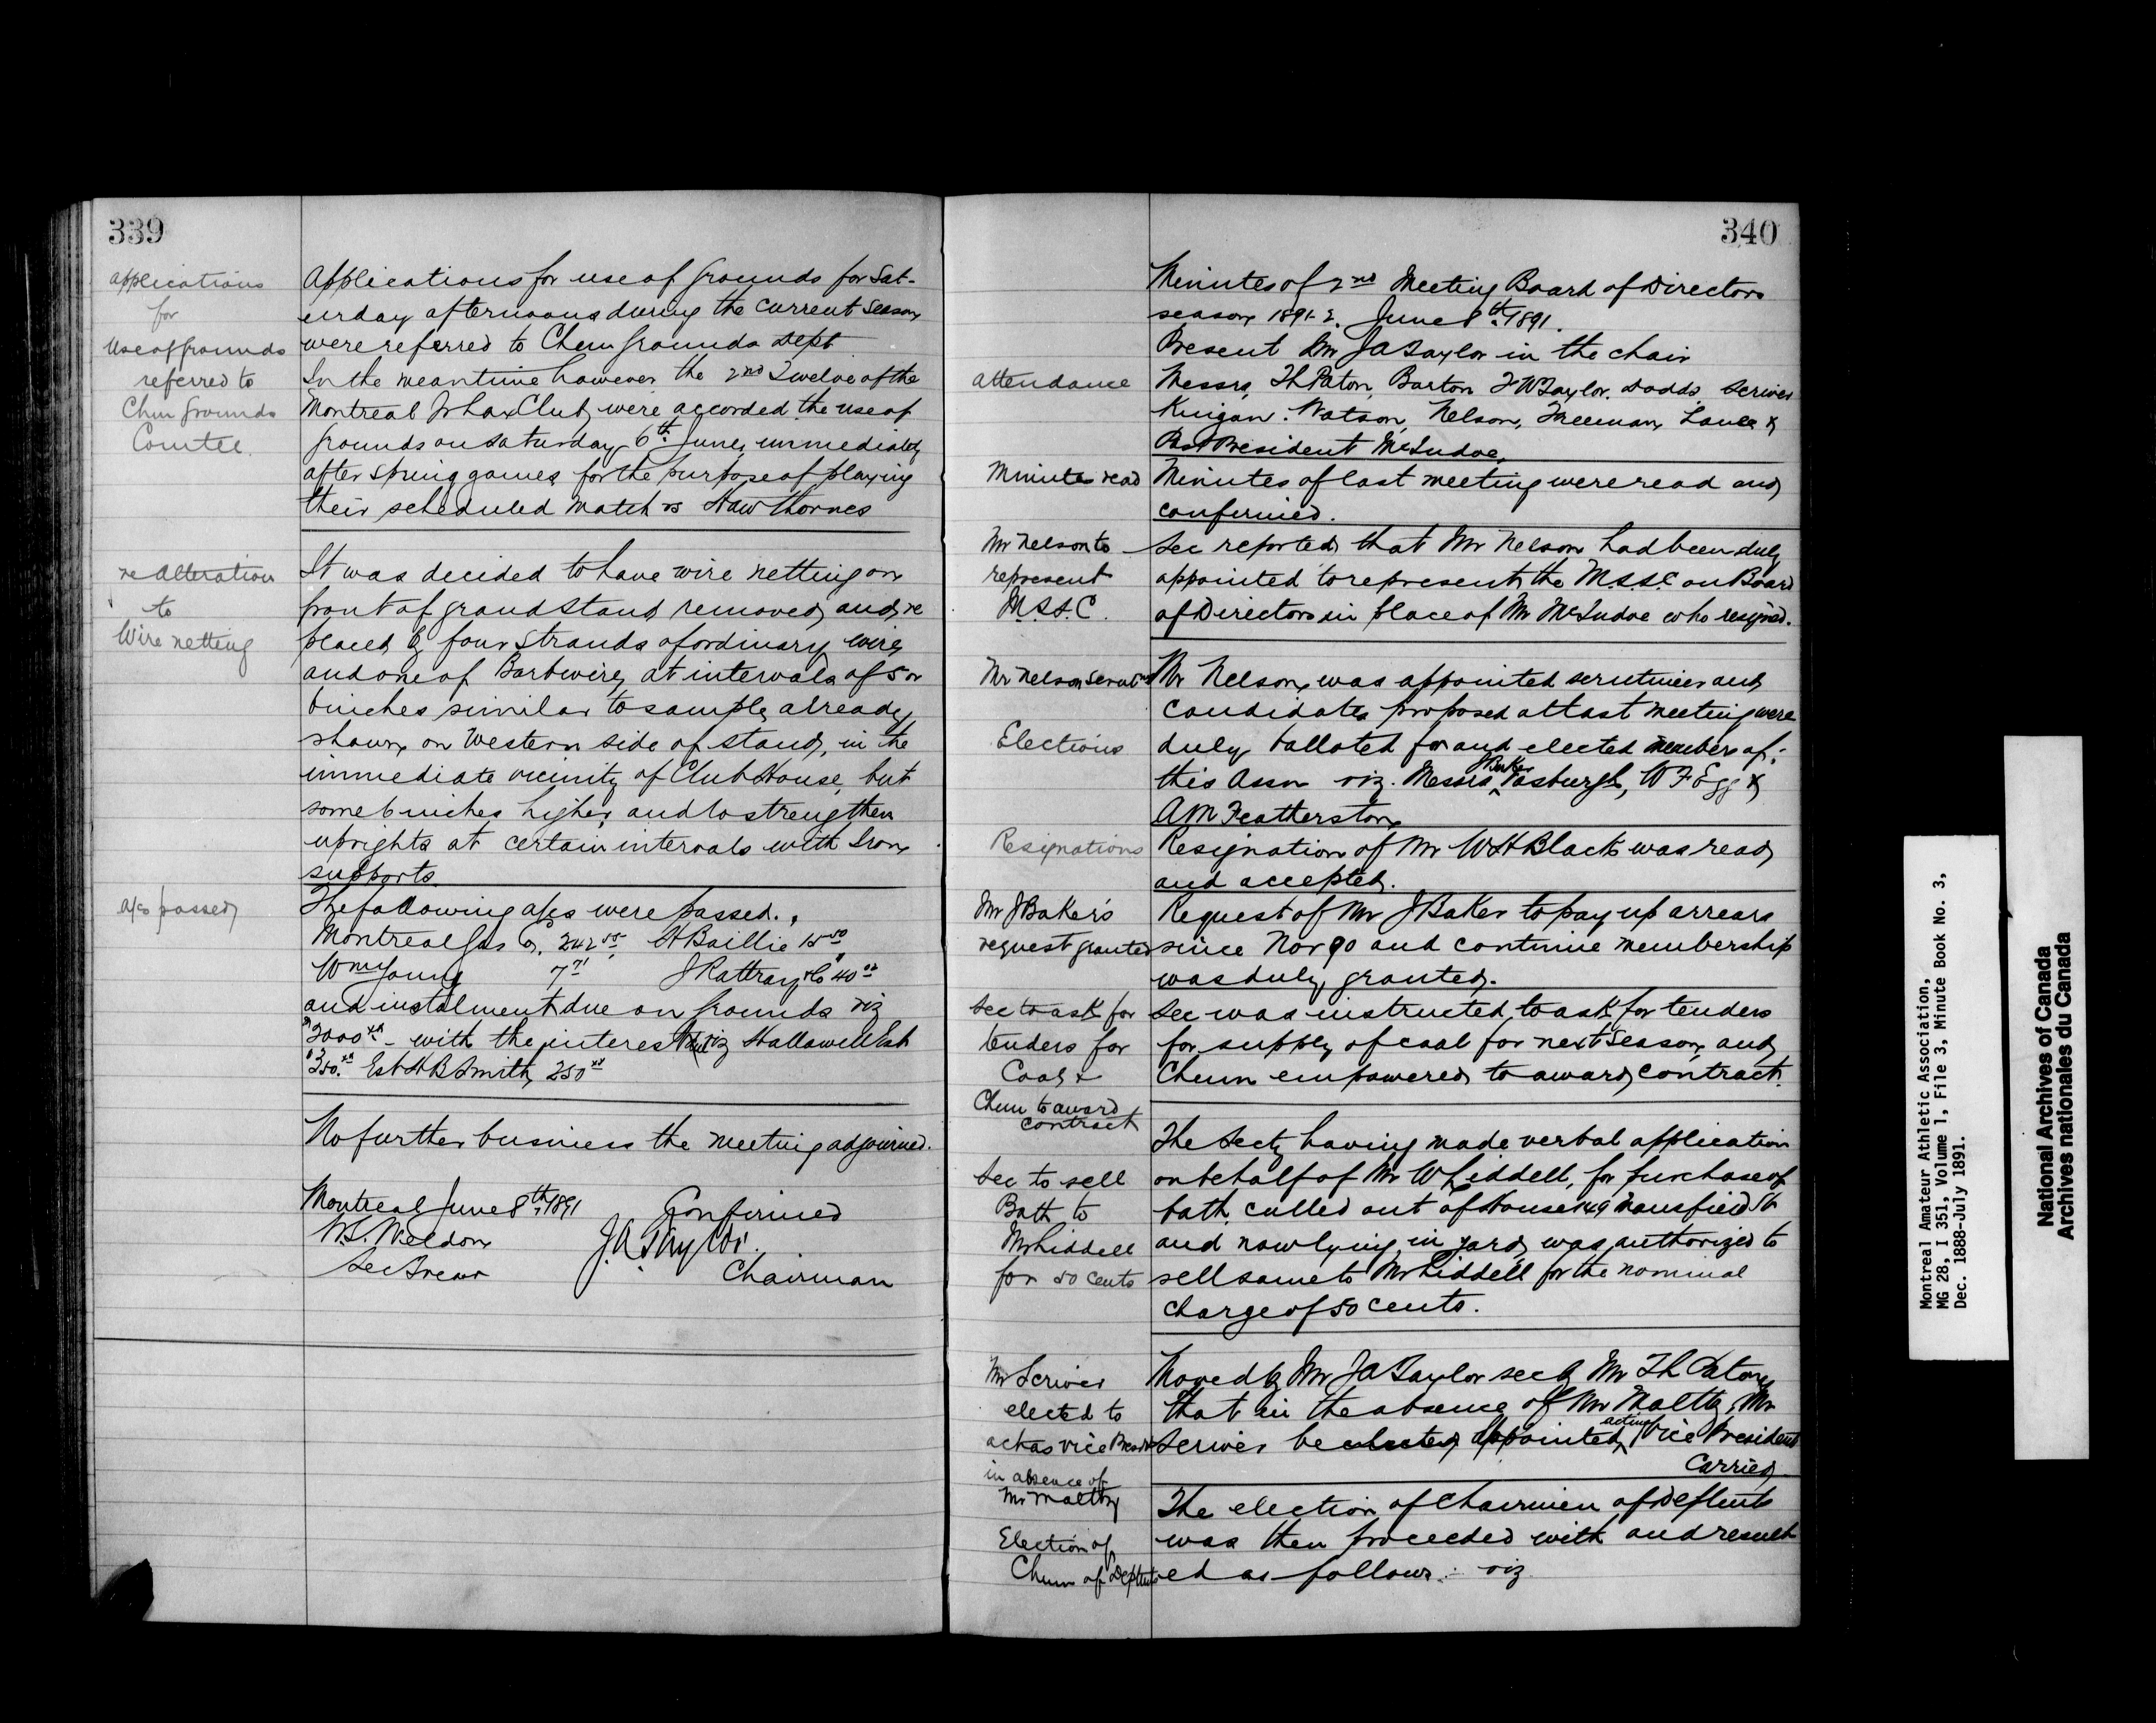 339
Applications
for
Use of Grounds
referred to
Chm Grounds
Comtee.
Applications for use of Grounds for Sat-
urday afternoons during the current season
were referred to Chm Grounds Dept
In the meantime however the 2nd Twelve of the
Montreal Jr Lax Club, were accorded the use of
Grounds on Saturday 6th June, immediately
after Spring games for the purpose of playing
their scheduled match vs Hawthornes
re Alteration
to
Wire netting
It was decided to have wire netting on
front of grand stand removed and re
placed by four strands of ordinary wire
and one of Barbwire, at intervals of 5 or
6 inches similar to sample already
shown on Western side of stand, in the
immediate vicinity of Club House, but
some 6 inches higher, and to strengthen
uprights at certain intervals with Iron
supports.
a/cs passed
The following a/cs were passed.
Montreal Gas Co. 242 55 H Baillie 15 50
Wm Young 7 71 J Rattray & Co 40
and instalment due on Grounds viz
$2000 xx - with the interest due viz Hallowell Est
$250. xx Est H B Smith, 250 xx
No further business the meeting adjourned.
Montreal June 8th 1891 Confirmed
W.S. Weldon J.A. Taylor.
Sec Treas Chairman
340
Minutes of 2nd Meeting Board of Directors
season 1891-2. June 8th 1891.
Present Mr J A Taylor in the chair
attendance
Messrs, T L Paton, Barton F W Taylor. Dodds, Scriver
Kingan. Watson, Nelson, Freeman, Lauer &
Past President McIndoe,
Minutes read
Minutes of last meeting were read and
confirmed.
Mr Nelson to
represent
M.S.S.C.
Sec reported that Mr Nelson had been duly
appointed to represent the M.S.S.C. on Board
of Directors in place of Mr McIndoe who resigned.
Mr Nelson Scrut
Mr Nelson, was appointed scrutineer and
candidates proposed at last meeting were
Elections
duly balloted for and elected members of
this Assn viz. Messrs J Baker Vosburgh, W F Egg &
A M Featherston
Resignations
Resignation of Mr W H Black was read
and accepted.
Mr J Baker's
request granted
Request of Mr J Baker to pay up arrears
since Nov 90 and continue membership
was duly granted.
Sec to ask for
tenders for
Coal &
Chm to award
contract
Sec was instructed to ask for tenders
for supply of coal for next season and
Chmn empowered to award contract.
Sec to sell
Bath to
Mr Liddell
for 50 cents
The Secty having made verbal application
on behalf of Mr W Liddell, for purchase of
bath, culled out of House 149 Mansfield St
and now lying in yard, was authorized to
sell same to Mr Liddell for the nominal
charge of 50 cents.
Mr Scriver
elected to
act as Vice Presdt
in absence of
Mr Maltby
Moved by Mr J A Taylor sec by Mr T L Paton
that in the absence of Mr Maltby, Mr
Scriver be elected appointed acting Vice President
Carried.
Election of
Chmn of Deptmts
The election of Chairmen of Deptmts
was then proceeded with and result
ed as follows: viz
Montreal Amateur Athletic Association,
MG 28, I 351, Volume 1, File 3, Minute Book No. 3,
Dec. 1888-July 1891.
National Archives of Canada
Archives nationales du Canada